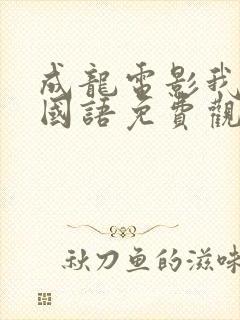 成龍電影我
國語免費觀
秋刀鱼的滋味